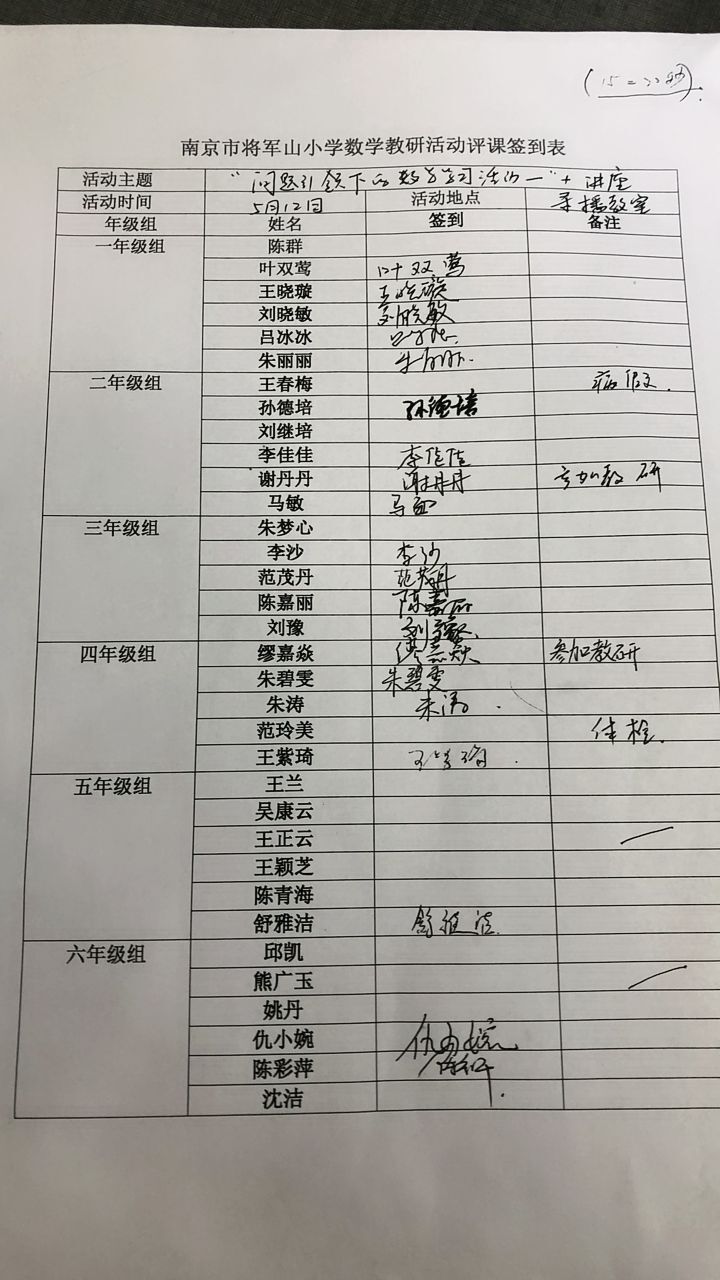 南京市将军山小学数学教研活动评课签到表
活动主题 "问题引领下的数学学习活动一"+讲座
活动时间 5月12日 活动地点 录播教室
年级组 姓名 签到 备注
一年级组 陈群
叶双莺 叶双莺
王晓璇 王晓璇
刘晓敏 刘晓敏
吕冰冰 吕冰冰
朱丽丽 朱丽丽
二年级组 王春梅 病假
孙德培 孙德培
刘继培
李佳佳 李佳佳
谢丹丹 谢丹丹 参加教研
马敏 马敏
三年级组 朱梦心
李沙 李沙
范茂丹 范茂丹
陈嘉丽 陈嘉丽
刘豫 刘豫
四年级组 缪嘉焱 缪嘉焱 参加教研
朱碧雯 朱碧雯
朱涛 朱涛
范玲美 体检
王紫琦 王紫琦
五年级组 王兰
吴康云
王正云
王颖芝
陈青海
舒雅洁 舒雅洁
六年级组 邱凯
熊广玉
姚丹
仇小婉 仇小婉
陈彩萍
沈洁